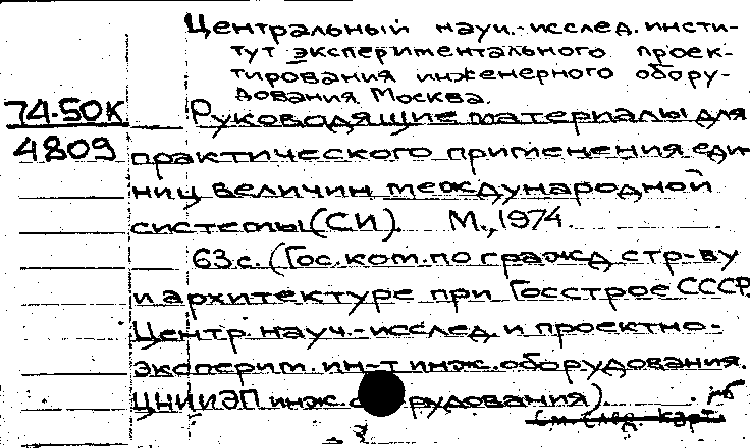 Центральный науч.-исслед. инсти-
тут экспериментального проек-
тирования инженерного обору-
дования. Москва.
74-50К Руководящие материалы для
4809 практического применения еди-
ниц величин международной
системы (СИ). М., 1974.
63 с. (Гос. ком. по гражд. стр-ву
и архитектуре при Госстрое СССР.
Центр. науч.-исслед. и проектно-
эксперим. ин-т инж. оборудования.
ЦНИИЭП инж. оборудования).
См. след. карт.